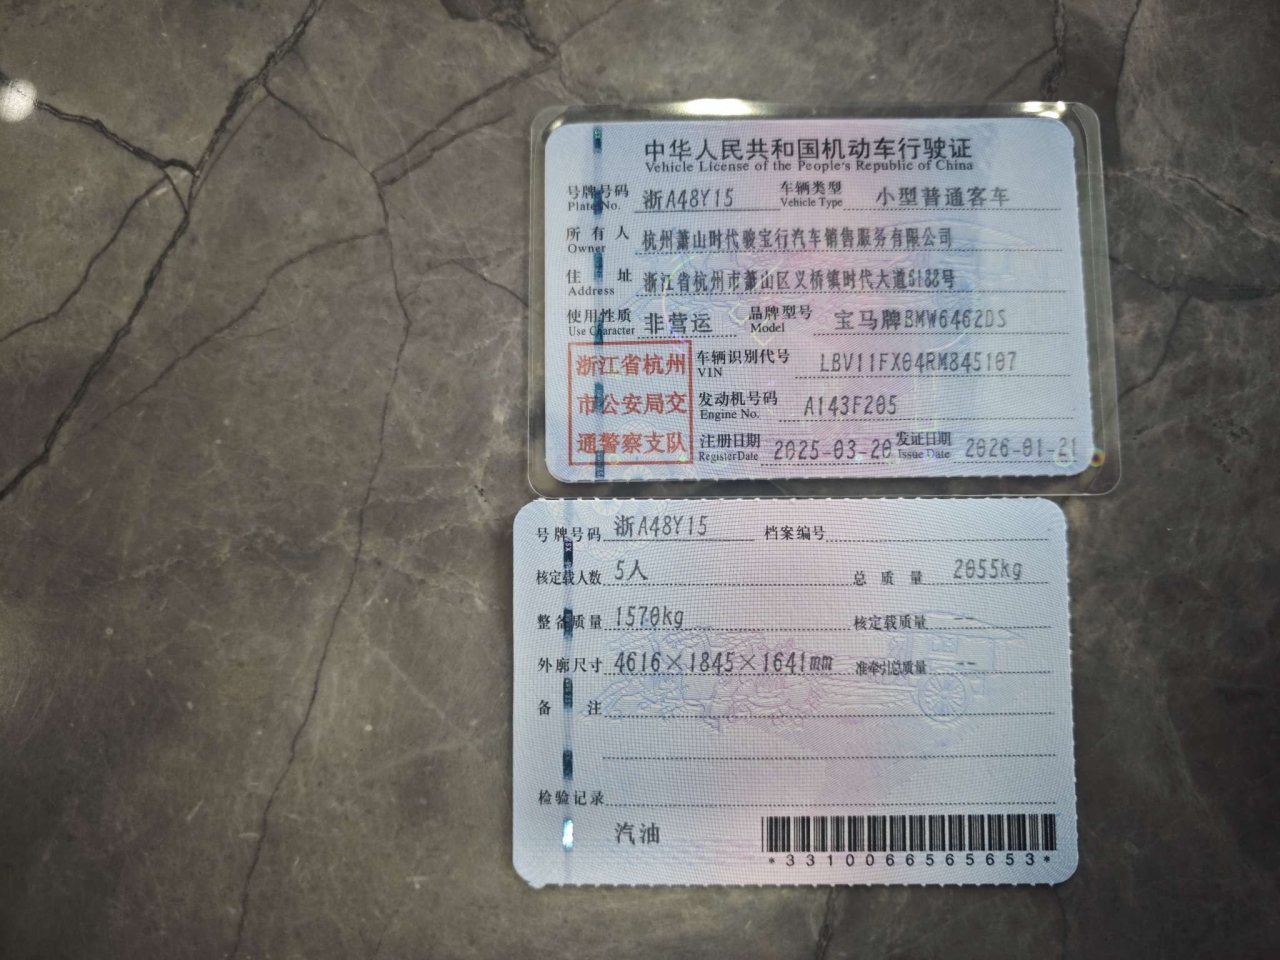 中华人民共和国机动车行驶证
Vehicle License of the People's Republic of China
号牌号码 浙A48Y15 车辆类型 小型普通客车
Plate No. Vehicle Type
所有人 杭州萧山时代骏宝行汽车销售服务有限公司
Owner
住址 浙江省杭州市萧山区义桥镇时代大道5188号
Address
使用性质 非营运 品牌型号 宝马牌BMW6462DS
Use Character Model
浙江省杭州
市公安局交
通警察支队
车辆识别代号 LBV11FX04RM845107
VIN
发动机号码 A143F205
Engine No.
注册日期 2025-03-20 发证日期 2026-01-21
Register Date Issue Date
号牌号码 浙A48Y15 档案编号
核定载人数 5人 总质量 2055kg
整备质量 1570kg 核定载质量 --
外廓尺寸 4616×1845×1641mm 准牵引总质量 --
备注
检验记录
汽油
*3310066565653*